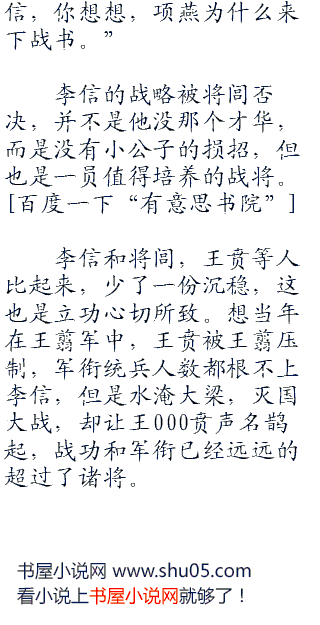 信，你想想，项燕为什么来
下战书。”
李信的战略被将闾否
决，并不是他没那个才华，
而是没有小公子的损招，但
也是一员值得培养的战将。
[百度一下“有意思书院”]
李信和将闾，王贲等人
比起来，少了一份沉稳，这
也是立功心切所致。想当年
在王翦军中，王贲被王翦压
制，军衔统兵人数都根不上
李信，但是水淹大梁，灭国
大战，却让王000贲声名鹊
起，战功和军衔已经远远的
超过了诸将。
书屋小说网 www.shu05.com
看小说上书屋小说网就够了！